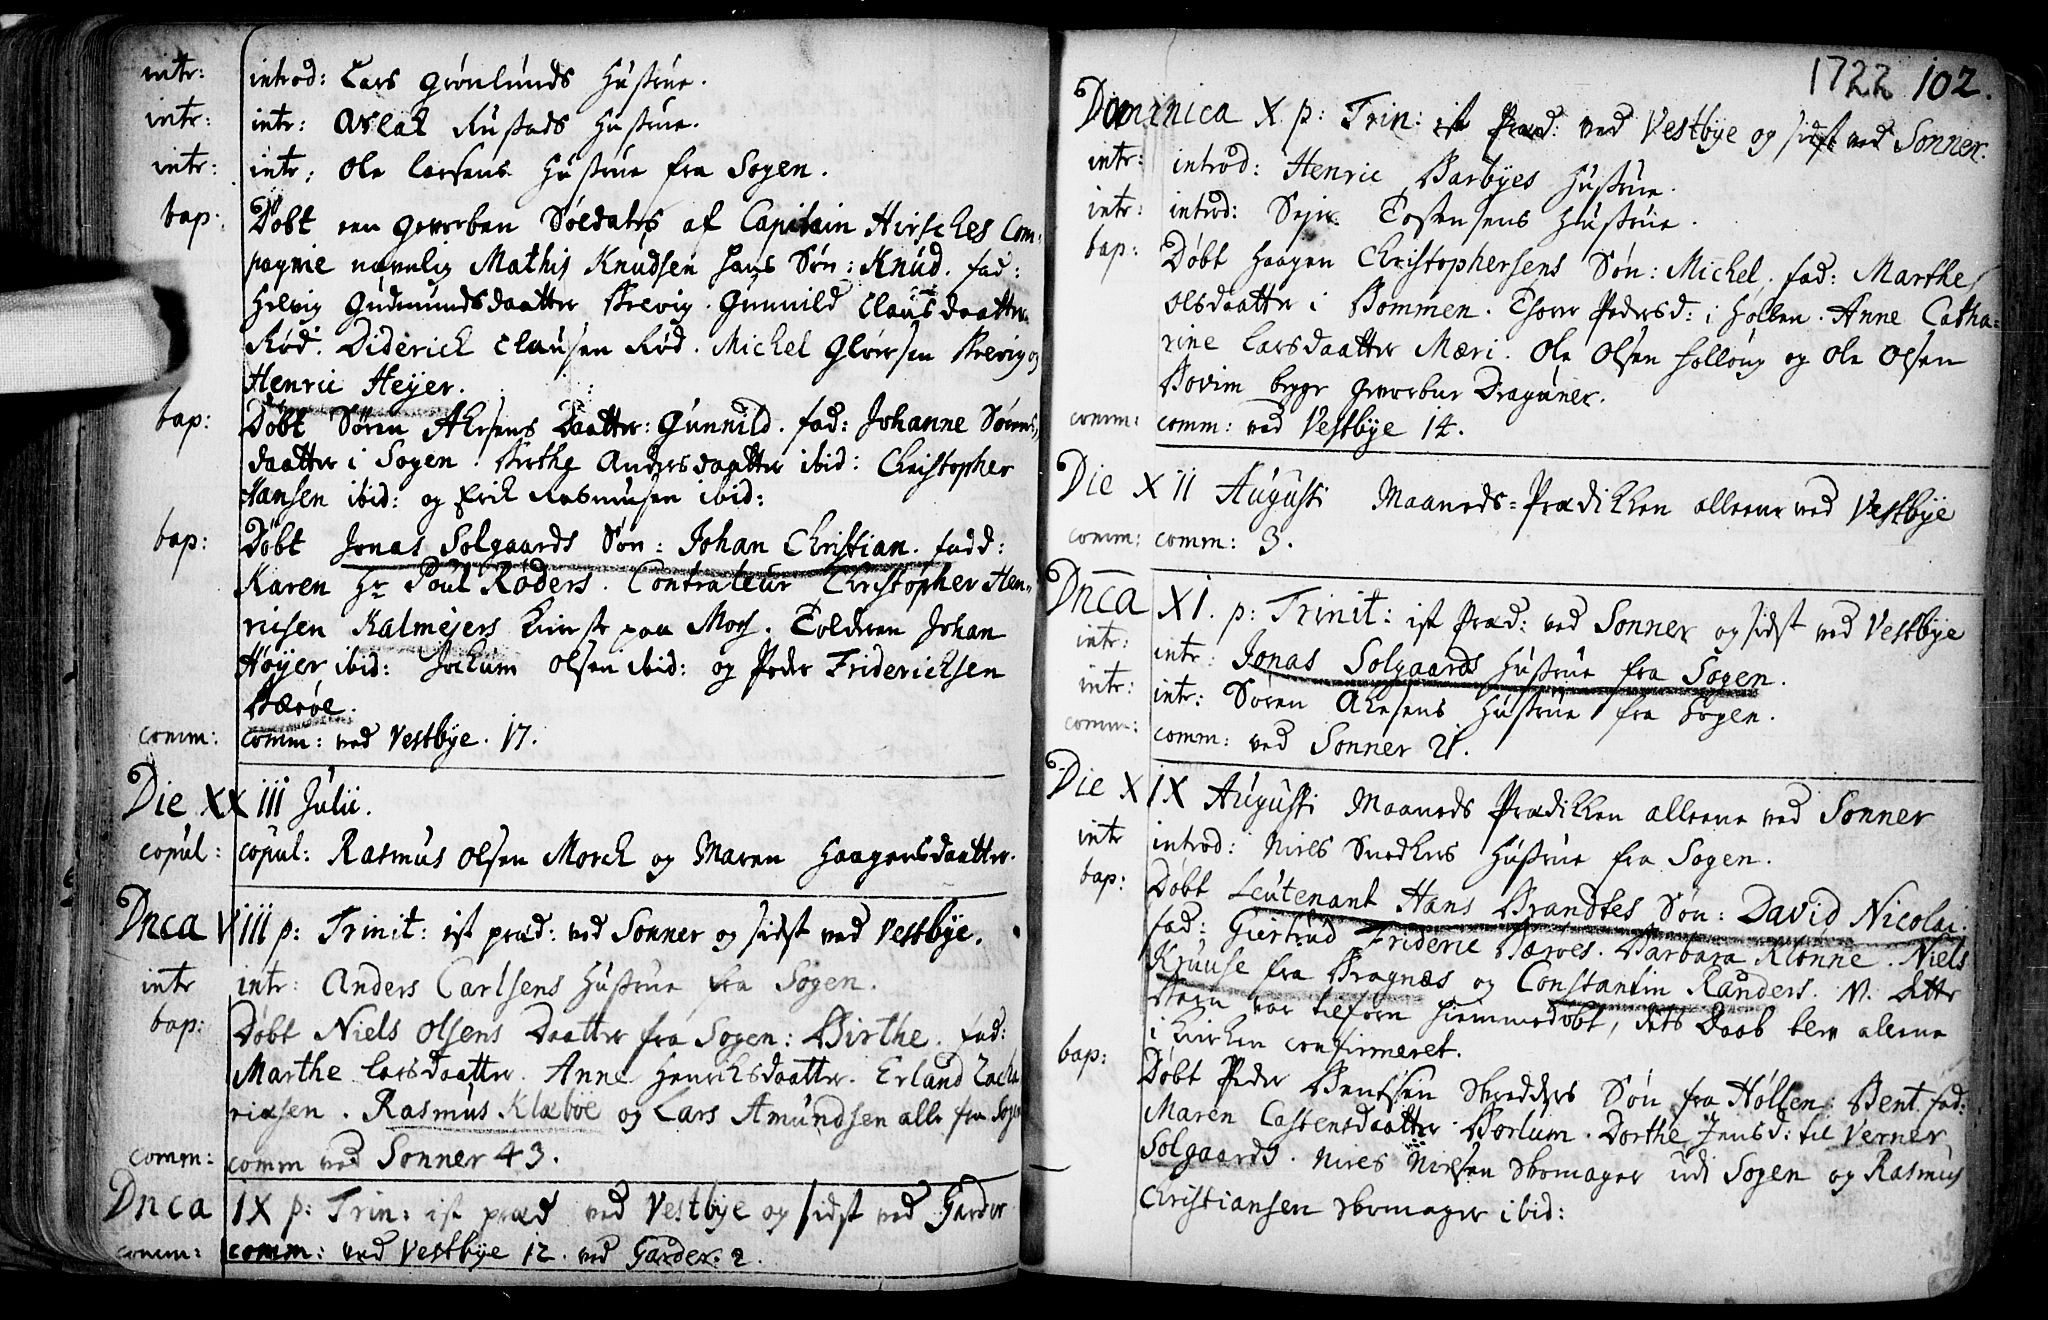 intr: introd: Lars Grönlunds Hustrue.
intr: intr: Aslak Rustads Hustrue.
intr: intr: Ole Larsens Hustrue fra Sogen.
bap: Döbt een gevorben Soldats af Capitain Hirsches Com-
pagnie navnlig Mathis Knudsen hans Sön: Knud. fad:
Helvig Gudmundsdaatter Krevig. Gunnild Clausdaatter
Röd. Diderich Clausen Röd. Michel Glörsen Krevig og
Henric Heyer.
bap: Döbt Sören Akesens Daatter: Gunnild. fad: Johanne Sörens-
daatter i Sogen. Birthe Andersdaatter ibid: Christopher
Hansen ibid: og Erik Rasmusen ibid:
bap: Döbt Jonas Solgaards Sön: Johan Christian. fadd:
Karen Hr Poul Röders. Contrateur Christopher Hen-
richsen Kalmeyers paa Moss. Tolderen Johan
Höyer ibid: Jochum Olsen ibid: og Peder Friderichsen
Bæröe.
comm: comm: ved Vestbye. 17.
Die XXIII Julii.
copul: copul: Rasmus Olsen Morck og Maren Haagensdaatter.
Dnca VIII p: Trinit: ist præd: ved Sonner og sidst ved Vestbye.
intr intr: Anders Carlsens Hustrue fra Sogen.
bap: Döbt Niels Olsens Daatter fra Sogen: Birthe. fad:
Marthe Larsdaatter. Anne Henrichsdaatter. Erland Zacha
riasen. Rasmus Klæboe og Lars Amundsen alle fra Sogen
comm: comm ved Sonner 43.
Dnca IX p: Trin: ist præd ved Vestbye og sidst ved Garder
comm: comm: ved Vestbye 12. ved Garder. 2.
1722 102.
Dominica X p: Trin: ist Præd: ved Vestbye og sidst ved Sonner.
intr: introd: Henric Barbyes Hustrue.
intr: introd: Sejer Tostensens Hustrue.
bap: Döbt Haagen Christophersens Sön: Michel. fad: Marthe
Olsdaatter i Bommen. Thore Pedersd: i Hollen. Anne Catha-
rine Larsdaatter Mæri. Ole Olsen Hollöng og Ole Olsen
Bovim begge gevorbne Dragoner.
comm: comm: ved Vestbye 14.
Die XII Augusti Maaneds-Prædikken alleene ved Vestbye
comm: comm: 3.
Dnca XI. p: Trinit: ist Præd: ved Sonner og sidst ved Vestbye
intr: intr: Jonas Solgaards Hustrue fra Sogen.
intr: intr: Sören Akesens Hustrue fra Sogen.
comm: comm: ved Sonner 21.
Die XIX Augusti Maaneds Prædikken alleene ved Sonner
intr introd: Niels Snedkers Hustrue fra Sogen.
bap: Döbt Leutenant Hans Brandtes Sön: David Nicolai.
fad: Giertrud Frideric Bæröes. Barbara Klonne. Niels
Kruuse fra Bragnæs og Constantin Randers. N. Dette
Barn var tilforn hiemmedöbt, dets Daab blev aleene
i Kirken confirmeret.
bap: Döbt Peder Bentsen Skredders Sön fra Hölen: Bent. fad:
Maren Castensdaatter Borlum. Dorthe Jensd: til Verner
Solgaards. Niels Nielsen Skomager udi Sogen og Rasmus
Christiansen Skomager ibid: